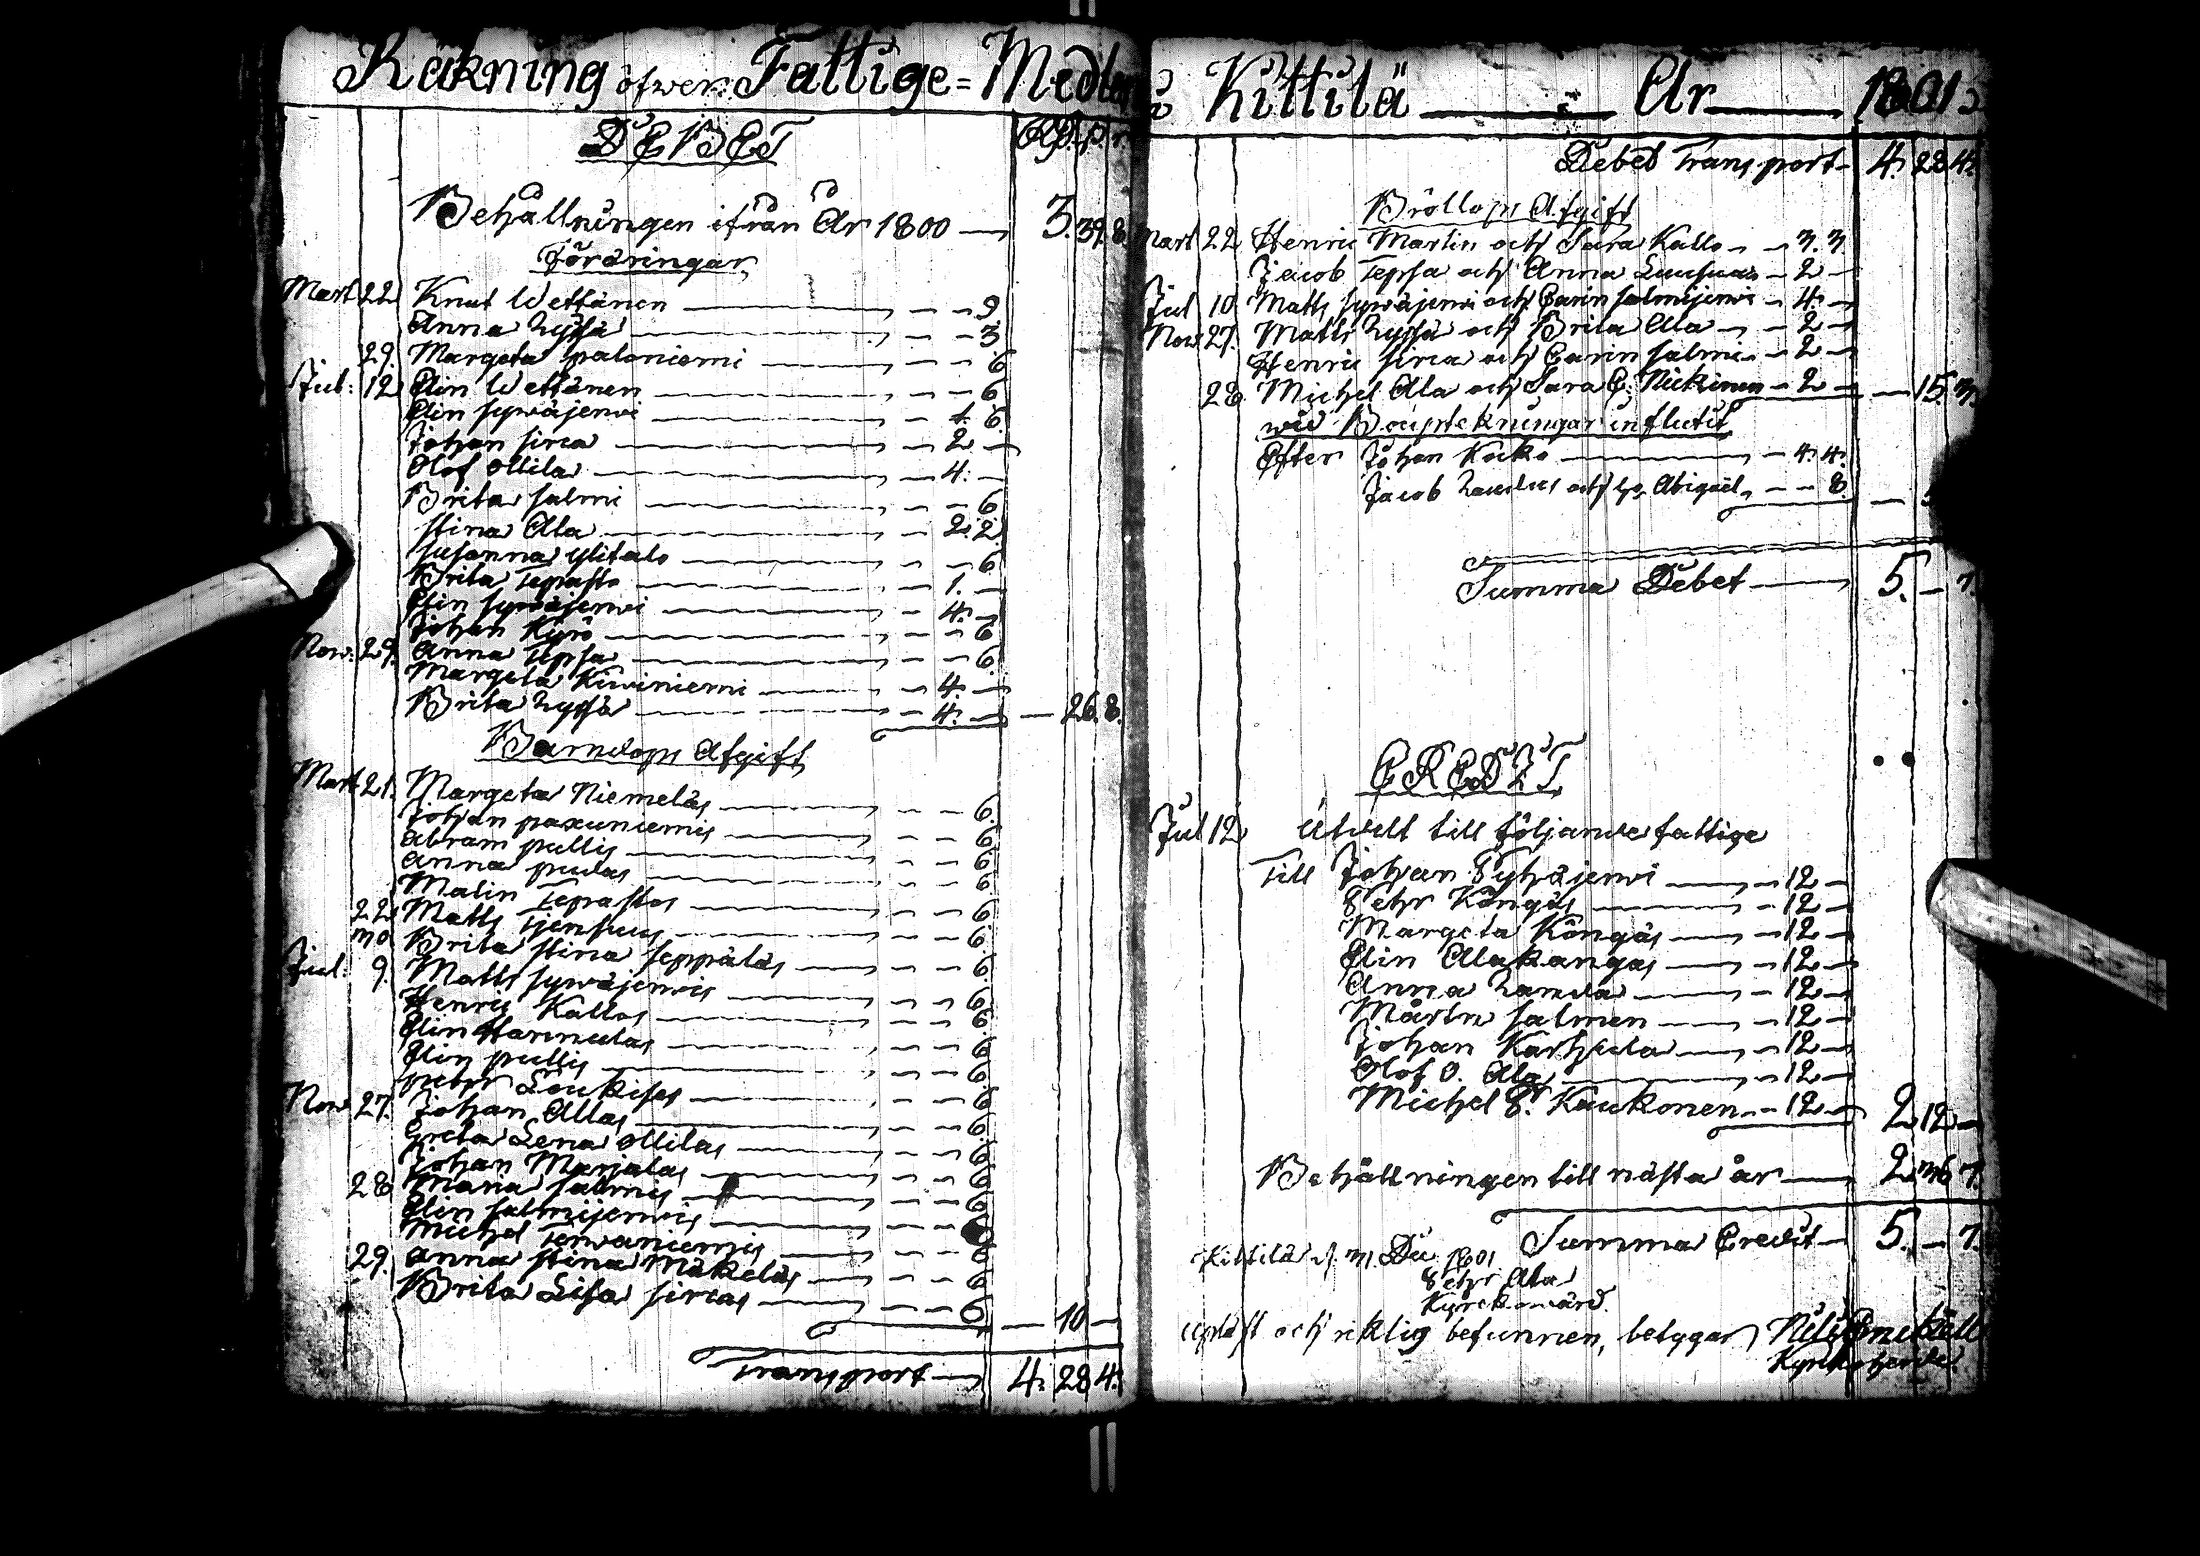 Räkning öfwer Fattige=Medlen
DEBET
Behållningen ifrån År 1800 — 3. 39. 8.
Föräringar
Mart 22 Knut Wettänen — 9
Anna Lyssä — 3
29. Margeta paloniemi — 6
Jul: 12 Elin Wettänen — 6
Elin sywäjerwi — 1. 6.
Johan sirca — 2 —
Olof ollila — 4. —
Brita salmi — 6
stina Ala — 2. 2.
susanna ylitalo — 6
Brita Tepasto — 1. —
Elin sywäjerwi — 4. —
Johan Kyrö — 6
Now: 29. Anna Tepsa — 6
Margeta Kiwiniemi — 4. —
Brita Lyssä — 4. — — 26. 8.
Barndops Afgift
Mart 21. Margeta Niemeläs — 6.
Johan paxuniemis — 6
Abram pullis — 6
Anna pudas — 6
Malin Tepastos — 6
22 Matts — 6
Brita stina seppäläs — 6
Jul: 9. Matts sywäjerwis — 6
Henrics Kallos — 6
Elin Hannulas — 6
Elin pullis — 6
petter Loukises — 6
Now 27. Johan Allas — 6
Greta Lena ollilas — 6
Johan Marjalas — 6
28 Maria salmis — 6
Elin salmijerwis
Michel Terwaniemis — 6
29. Anna stina Mäkeläs — 6
Brita Lisa sircas — 6 — 10 —
Transport — 4. 28 4.
Kittilä — År — 1801
Debet Transport — 4. 28 4.
Bröllops Afgift
Mart 22 Henric Martin och Sara Kallo — 3. 3.
Jacob Tepsa och Anna — 2 —
Jul 10 Matts sywäjerwi och Carin salmijerwi — 4. —
Now 27. Matts Lyssä och Brita Ala — 2 —
Henric sirca och Carin salmi — 2 —
28 Michel Ala och Sara C: Nickinen — 2 — — 15. 3.
wid Boupteckningar influtit
Efter Johan Kuko — 4. 4.
Jacob och Abigaël — 8.
Summa Debet — 5. — 7.
CREDIT
Jul 12 Utdelt till följande fattige
Till Johan Pyhäjerwi — 12 —
Pehr Köngäs — 12 —
Margeta Köngäs — 12 —
Elin Alakangas — 12 —
Anna Landa — 12 —
Mårtn salmen — 12 —
Johan Karhula — 12 —
Olof O. Ala — 12 —
Michel P. Kaukonen — 12 — 2 12 —
Behållningen till nästa år — 2. 36 7.
Summa Credit — 5. — 7.
Kittilä d. 31 Dec 1801
Pehr Ala
Kyrckowärd.
Upläst och riktig befunnen, betygar
Kyrckoherde